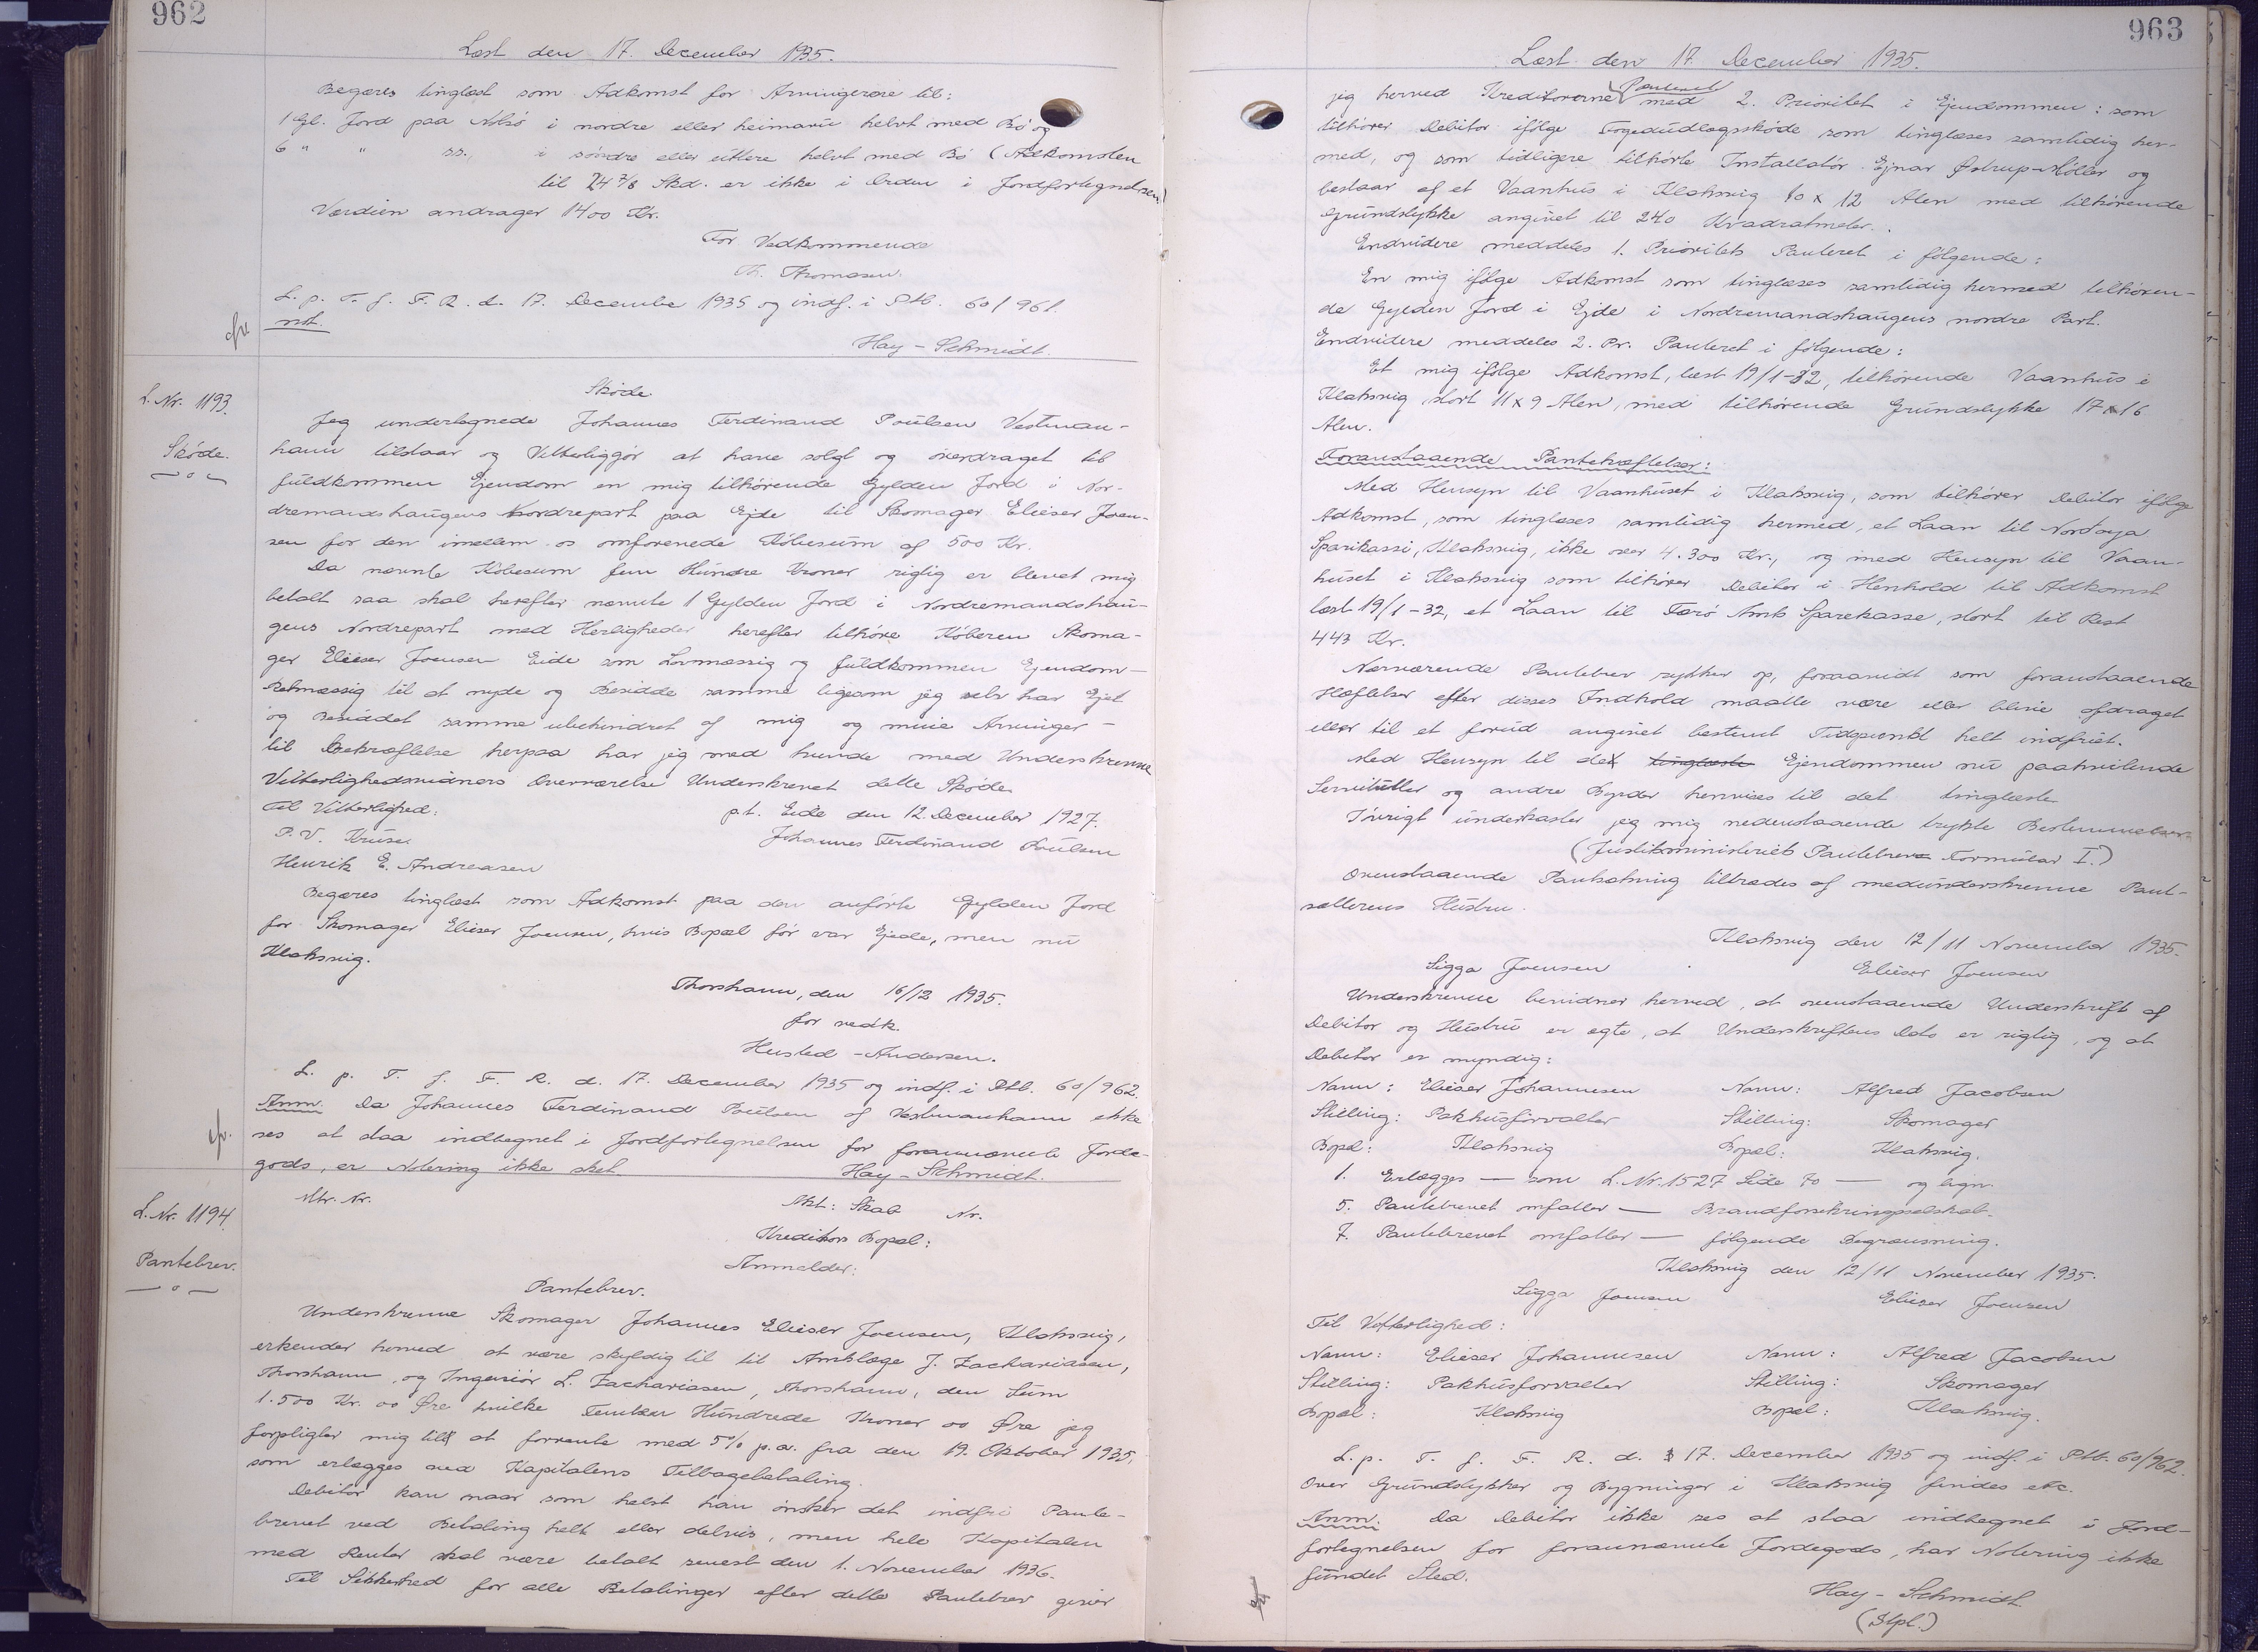 962
Læst den 17. December 1935.
Begæres tinglæst som Adkomst for Arvingerne til:
1 Gl. Jord paa Nolsö i nordre eller heimaru helvt med Bö og
6 " " ss. i söndre eller uttere helvt med Bö (Adkomsten
til 24 7/8 Skd. er ikke i Orden i Jordfortegnelsen)
Værdien andrager 1400 Kr.
For Vedkommende
Th. Thomasen.
L. p. T. f. F. R. d. 17. December 1935 og indf. i Ptb. 60/961.
not.
Hay-Schmidt.
L. Nr. 1193.
Sköde.
Sköde
Jeg undertegnede Johannes Ferdinand Poulsen Vestman-
havn tilstaar og Vitterliggör at have solgt og overdraget til
fuldkommen Ejendom en mig tilhörende Gylden Jord i Nor-
dremandshaugens Nordrepart paa Ejde til Skomager Elieser Joen-
sen for den imellem os omforenede Köbesum af 500 Kr.
Da nævnte Köbesum fem Hundre Kroner rigtig er blevet mig
betalt saa skal herefter nævnte 1 Gylden Jord i Nordremandshau-
gens Nordrepart med Herligheder herefter tilhöre Köberen Skoma-
ger Elieser Joensen Eide som Lovmæssig og fuldkommen Ejendom-
Retmæssig til at nyde og Besidde samme ligesom jeg selv har Ejet
og Besiddet samme ubehindret af mig og mine Arvinger -
til Bekræftelse herpaa har jeg med hænde med Underskrevne
Vitterlighedsvidners Overværelse Underskrevet dette Sköde
Til Vitterlighed: p.t. Eide den 12. December 1927.
P. V. Kruse Johannes Ferdinand Poulsen
Henrik E. Andreasen
Begæres tinglæst som Adkomst paa den anförte Gylden Jord
for Skomager Elieser Joensen, hvis Bopæl för var Ejede, men nu
Klaksvig.
Thorshavn, den 16/12 1935.
for vedk.
Husted-Andersen.
L. p. T. f. F. R. d. 17. December 1935 og indf. i Ptb. 60/962.
Anm. Da Johannes Ferdinand Poulsen af Vestmanhavn ikke
ses at staa indtegnet i Jordfortegnelsen forforannævnte Jorde-
gods, er Notering ikke sket. Hay-Schmidt.
L. Nr. 1194.
Pantebrev.
Mtr. Nr. Akt: Skab Nr.
Kreditors Bopæl:
Anmelder:
Pantebrev.
Underskrevne Skomager Johannes Elieser Joensen, Klaksvig,
erkender herved at være skyldig til til Amtslæge J. Zachariasen,
Thorshavn, og Ingeniör L. Zachariasen, Thorshavn, den Sum
1.500 Kr. 00 Öre hvilke Femten Hundrede Kroner 00 Öre jeg
forpligter mig til at forrente med 5% p.a. fra den 19. Oktober 1935.
som erlægges ved Kapitalens Tilbagebetaling.
Debitor kan naar som helst han önsker det indfri Pante-
brevet ved Betaling helt eller delvis, men hele Kapitalen
med Renter skal være betalt senest den 1. November 1936.
Til Sikkerhed for alle Betalinger efter dette Pantebrev giver
963
Læst den 17. December 1935.
jeg herved Kreditorerne Panteret med 2. Prioritet i Ejendommen: som
tilhörer Debitor ifölge Fogedudlægssköde som tinglæses samtidig her-
med, og som tidligere tilhörte Installatör Ejnar Østrup-Möller og
bestaar af et Vaanhus i Klaksvig 10 x 12 Alen med tilhörende
Grundstykke angivet til 240 Kvadratmeter.
Endvidere meddeles 1. Prioritets Panteret i fölgende:
En mig ifölge Adkomst som tinglæses samtidig hermed tilhören-
de Gylden Jord i Ejde i Nordremandshaugens nordre Part.
Endvidere meddeles 2. Pr. Panteret i fölgende:
Et mig ifölge Adkomst, læst 19/1-32, tilhörende Vaanhus i
Klaksvig stort 11 x 9 Alen, med tilhörende Grundstykke 17 x 16
Alen.
Foranstaaende Pantehæftelser:
Med Hensyn til Vaanhuset i Klaksvig, som tilhörer Debitor ifölge
Adkomst, som tinglæses samtidig hermed, et Laan til Nordoya
Sparikassi, Klaksvig, ikke over 4.300 Kr., og med Hensyn til Vaan-
huset i Klaksvig som tilhörer Debitor i Henhold til Adkomst
læst 19/1-32, et Laan til Færö Amts Sparekasse, stort til Rest
443 Kr.
Nærværende Pantebrev rykker op, forsaavidt som foranstaaende
Hæftelser efter disses Indhold maatte være eller blive afdraget
eller til et forud angivet bestemt Tidspunkt helt indfriet.
Med Hensyn til de tinglæste Ejendommen nu paahvilende
Servitutter og andre Byrder henvises til det tinglæste
Iövrigt underkaster jeg mig nedenstaaende trykte Bestemmelser.
(Justitsministeriets Pantebrev Formular I.)
Ovenstaaende Pantsætning tiltrædes af medunderskrevne Pant-
sætterens Hustru.
Klaksvig den 12/11 November 1935.
Sigga Joensen Elieser Joensen
Underskrevne bevidner herved, at ovenstaaende Underskrift af
Debitor og Hustru er ægte, at Underskriftens Dato er rigtig, og at
Debitor er myndig:
Navn: Elieser Johannesen Navn: Alfred Jacobsen
Stilling: Pakhusforvalter Stilling: Skomager
Bopæl: Klaksvig Bopæl: Klaksvig.
1. Erlægges — som L. Nr. 1527 Side 70 — og lign.
5. Pantebrevet omfatter — Brandforsikringsselskab.
7. Pantebrevet omfatter — fölgende Begrænsning.
Klaksvig den 12/11 November 1935.
Sigga Joensen Elieser Joensen
Til Vitterlighed:
Navn: Elieser Johannesen Navn: Alfred Jacobsen
Stilling: Pakhusforvalter Stilling: Skomager
Bopæl: Klaksvig Bopæl: Klaksvig.
L. p. T. f. F. R. d. 17. December 1935 og indf. i Ptb. 60/962.
Over Grundstykker og Bygninger i Klaksvig findes etc.
Anm. Da Debitor ikke ses at staa indtegnet i Jord-
fortegnelsen for forannævnte Jordegods, har Notering ikke
fundet Sted.
Hay-Schmidt
(Stpl.)